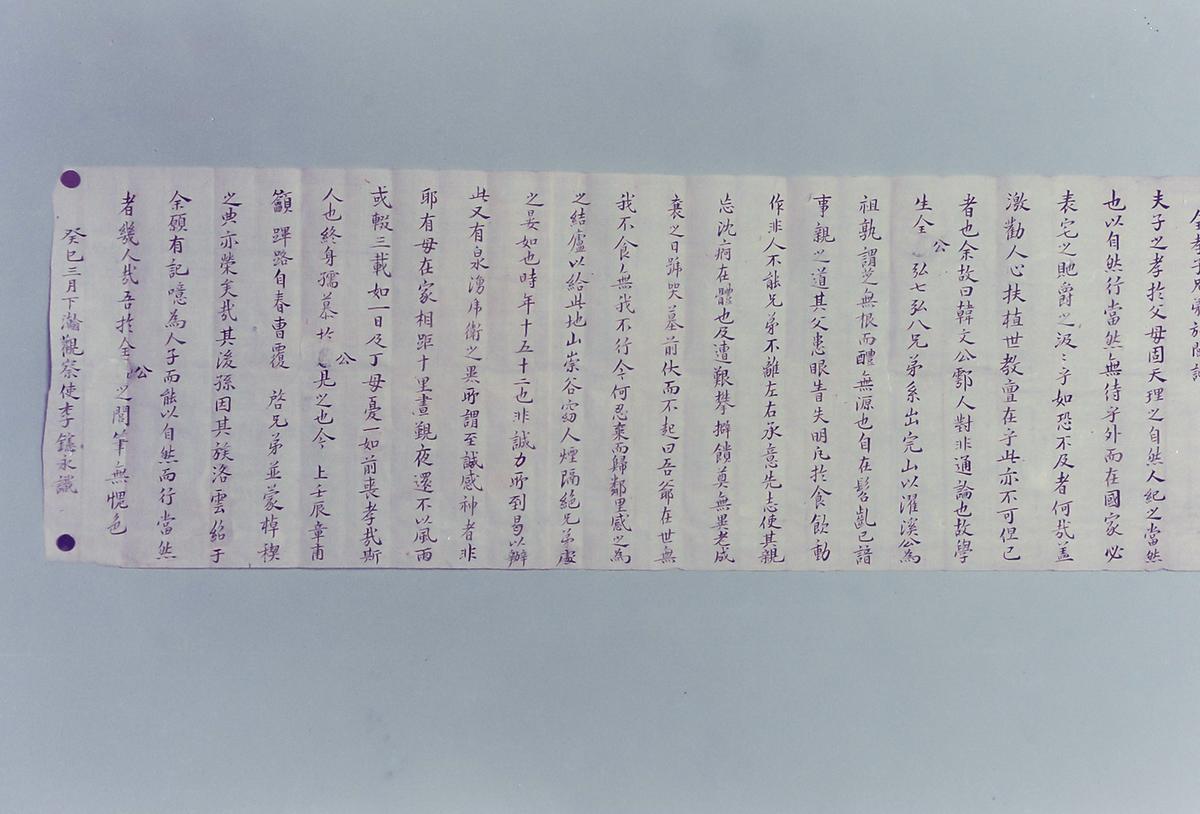 夫子之孝於父母固天理之自然人紀之當然
也以自然行當然無待乎外而在國家必
表宅之貤爵之汲ミ乎如恐不及者何哉盖
激勸人心扶植世教亶在乎此亦不可但已
者也余故曰韓文公鄠人對非通論也故學
生全公弘七弘八兄弟系出完山以濯溪公為
祖孰謂芝無根而醴無源也自在髫齔已諳
事親之道其父患眼眚失明凡於食飲動
作非人不能兄弟不離左右承意先志使其親
忘沈痾在體也及遭艱攀擗饋奠無異老成
襄之日號哭墓前伏而不起曰吾爺在世無
我不食無我不行今何忍棄而歸鄰里感之為
之結廬以給此地山崇谷窈人煙隔絕兄弟處
之晏如也時年十五十二也非誠力所到曷以辦
此又有泉湧虎衛之異所謂至誠感神者非
耶有母在家相距十里晝覲夜還不以風雨
或輟三載如一日及丁母憂一如前喪孝哉斯
人也終身孺慕於公見之也今上壬辰章甫
籲蹕路自春曹覆啓兄弟並蒙棹楔
之典亦榮矣哉其後孫因其族洛雲紹于
余願有記噫為人子而能以自然而行當然
者幾人哉吾於全公之閭筆無愧色
癸巳三月下瀚觀察使李鑣永識